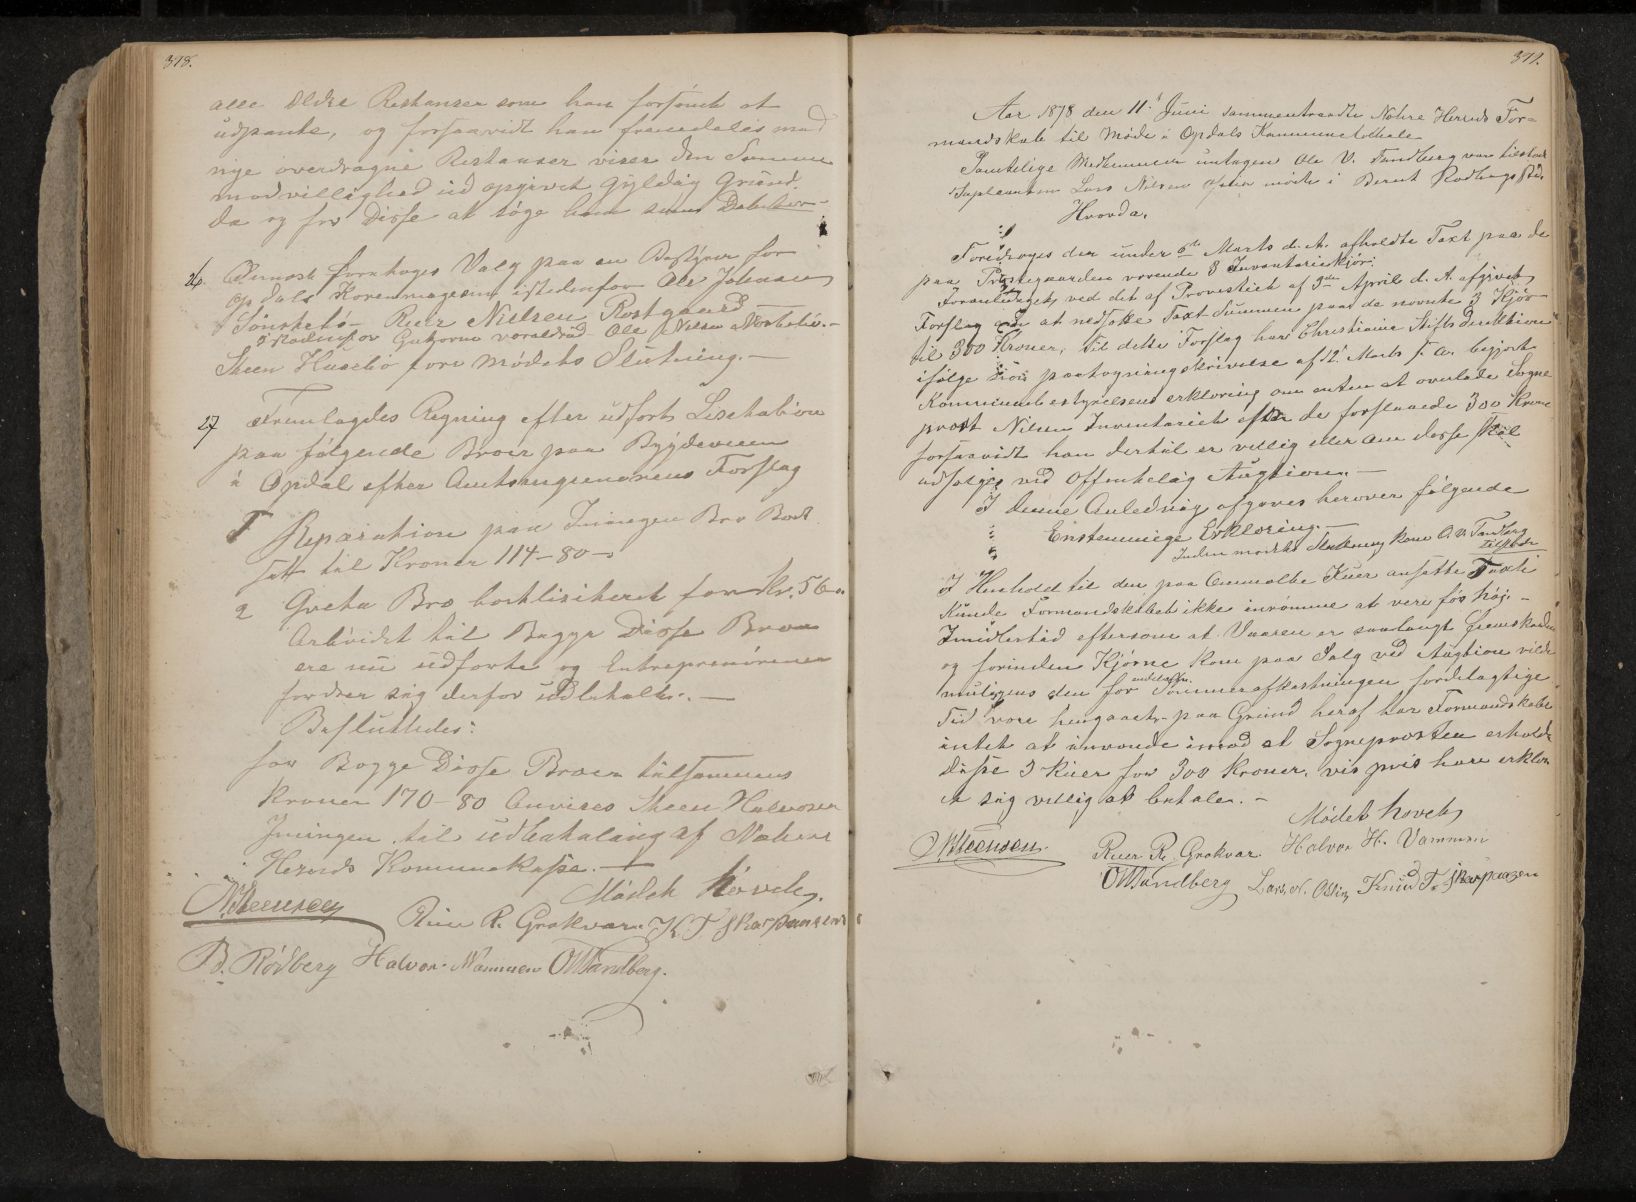 378.
alle ældre Restanser som han forsømte at
udpante, og forsaavidt han fremdeles med
nye overdragne Restanser viser den Samme
modvillighed ud opgivet Gyldig Grund.
da og for Disse at søge ham som Debitor-
26. foretages Valg paa en Bestyrer for
Opdals Kornmagasin istedenfor Ole Johnsen
Sønstebø - Ruer Nielsen Rostgaard
Ole Nilsen
Steen Husebø fore Mødets Slutning. -
27 Fremlagdes Regning efter udført Lisetation
paa følgende Broer paa Bygdeveien
i Opdal efter Amtsingeniørens Forslag
1 Reparation paa Juvengen Bro Bort
satt til Kroner 114-80-
2 Gveta Bro bortlisiteret for Kr. 56-
Arbeidet til Begge Disse Broer
ere nu udførte og Entreprenørerne
fordrer sig derfor udbetalt. -
Besluttedes:
for Begge Disse Broer tilsammens
Kroner 170-80 Anvises Steen Halvorsen
Juvengen til udbetaling af Nore
Herreds Kommunekasse. -
Mødet hævet.
N. Steensen Ruer R. Grokvar. K T Skarpaasen
B. Rødberg Halvor Vammen O V Tandberg.
379.
Aar 1878 den 11te Juni sammentraadte Nore Herreds For=
mandskab til Møde i Opdals Kommunelokale
Samtelige Medlemmer untagen Ole V. Tandberg var tilstede
Suplianten Lars Nilsen møtte i Bernt Rødbergs Sted
Hvorda.
Foredroges den under 6te Marts d. A. afholdte Taxt paa de
paa Præstegaarden værende 3 Inventariekjør.
Foranlediget ved det af Provstiet af 5te April d. A. afgivet
Forslag om at nedsætte Taxt Summen paa de nævnte 3 Kjør
til 300 Kroner, til dette Forslag har Christiania Stifts Direktion
ifølge paategningsskrivelse af 12. f. A. begjært
Kommunebestyrelsens erklæring om enten at overlade Sogne
prest Nilsen Inventariet efter de forslaaede 300 Krone
forsaavidt han dertil er villig eller om disse skal
udsælges ved Offentelig Augtion. -
I denne Anledning afgaves herover følgende
Enstemmige Erklæring. -
Inden mødets Slutning kom O. V. Tandberg
tilstede
I Henhold til den paa Omtalte Kuer ansatte Taxt
Kunde Formandskabet ikke inrømme at vere før høi. -
Imidlertid eftersom at Vaaren er saalangt fremskreden
og forinden Kjørne kom paa Salg ved Augtion vilde
muligens den for Sommerafkastningen fordelagtige
Tid være hengaaet. paa Grund heraf har Formandskabet
intet at invende imod at Sognepresten erholde
disse 3 Kuer for 300 Kroner, vis pris han erklær
er sig villig at betale. -
Mødet hævet
N Steensen. Ruer R. Grokvar. Halvor H. Vammen
O V Tandberg Lars N. Knud T. Skarpaasen